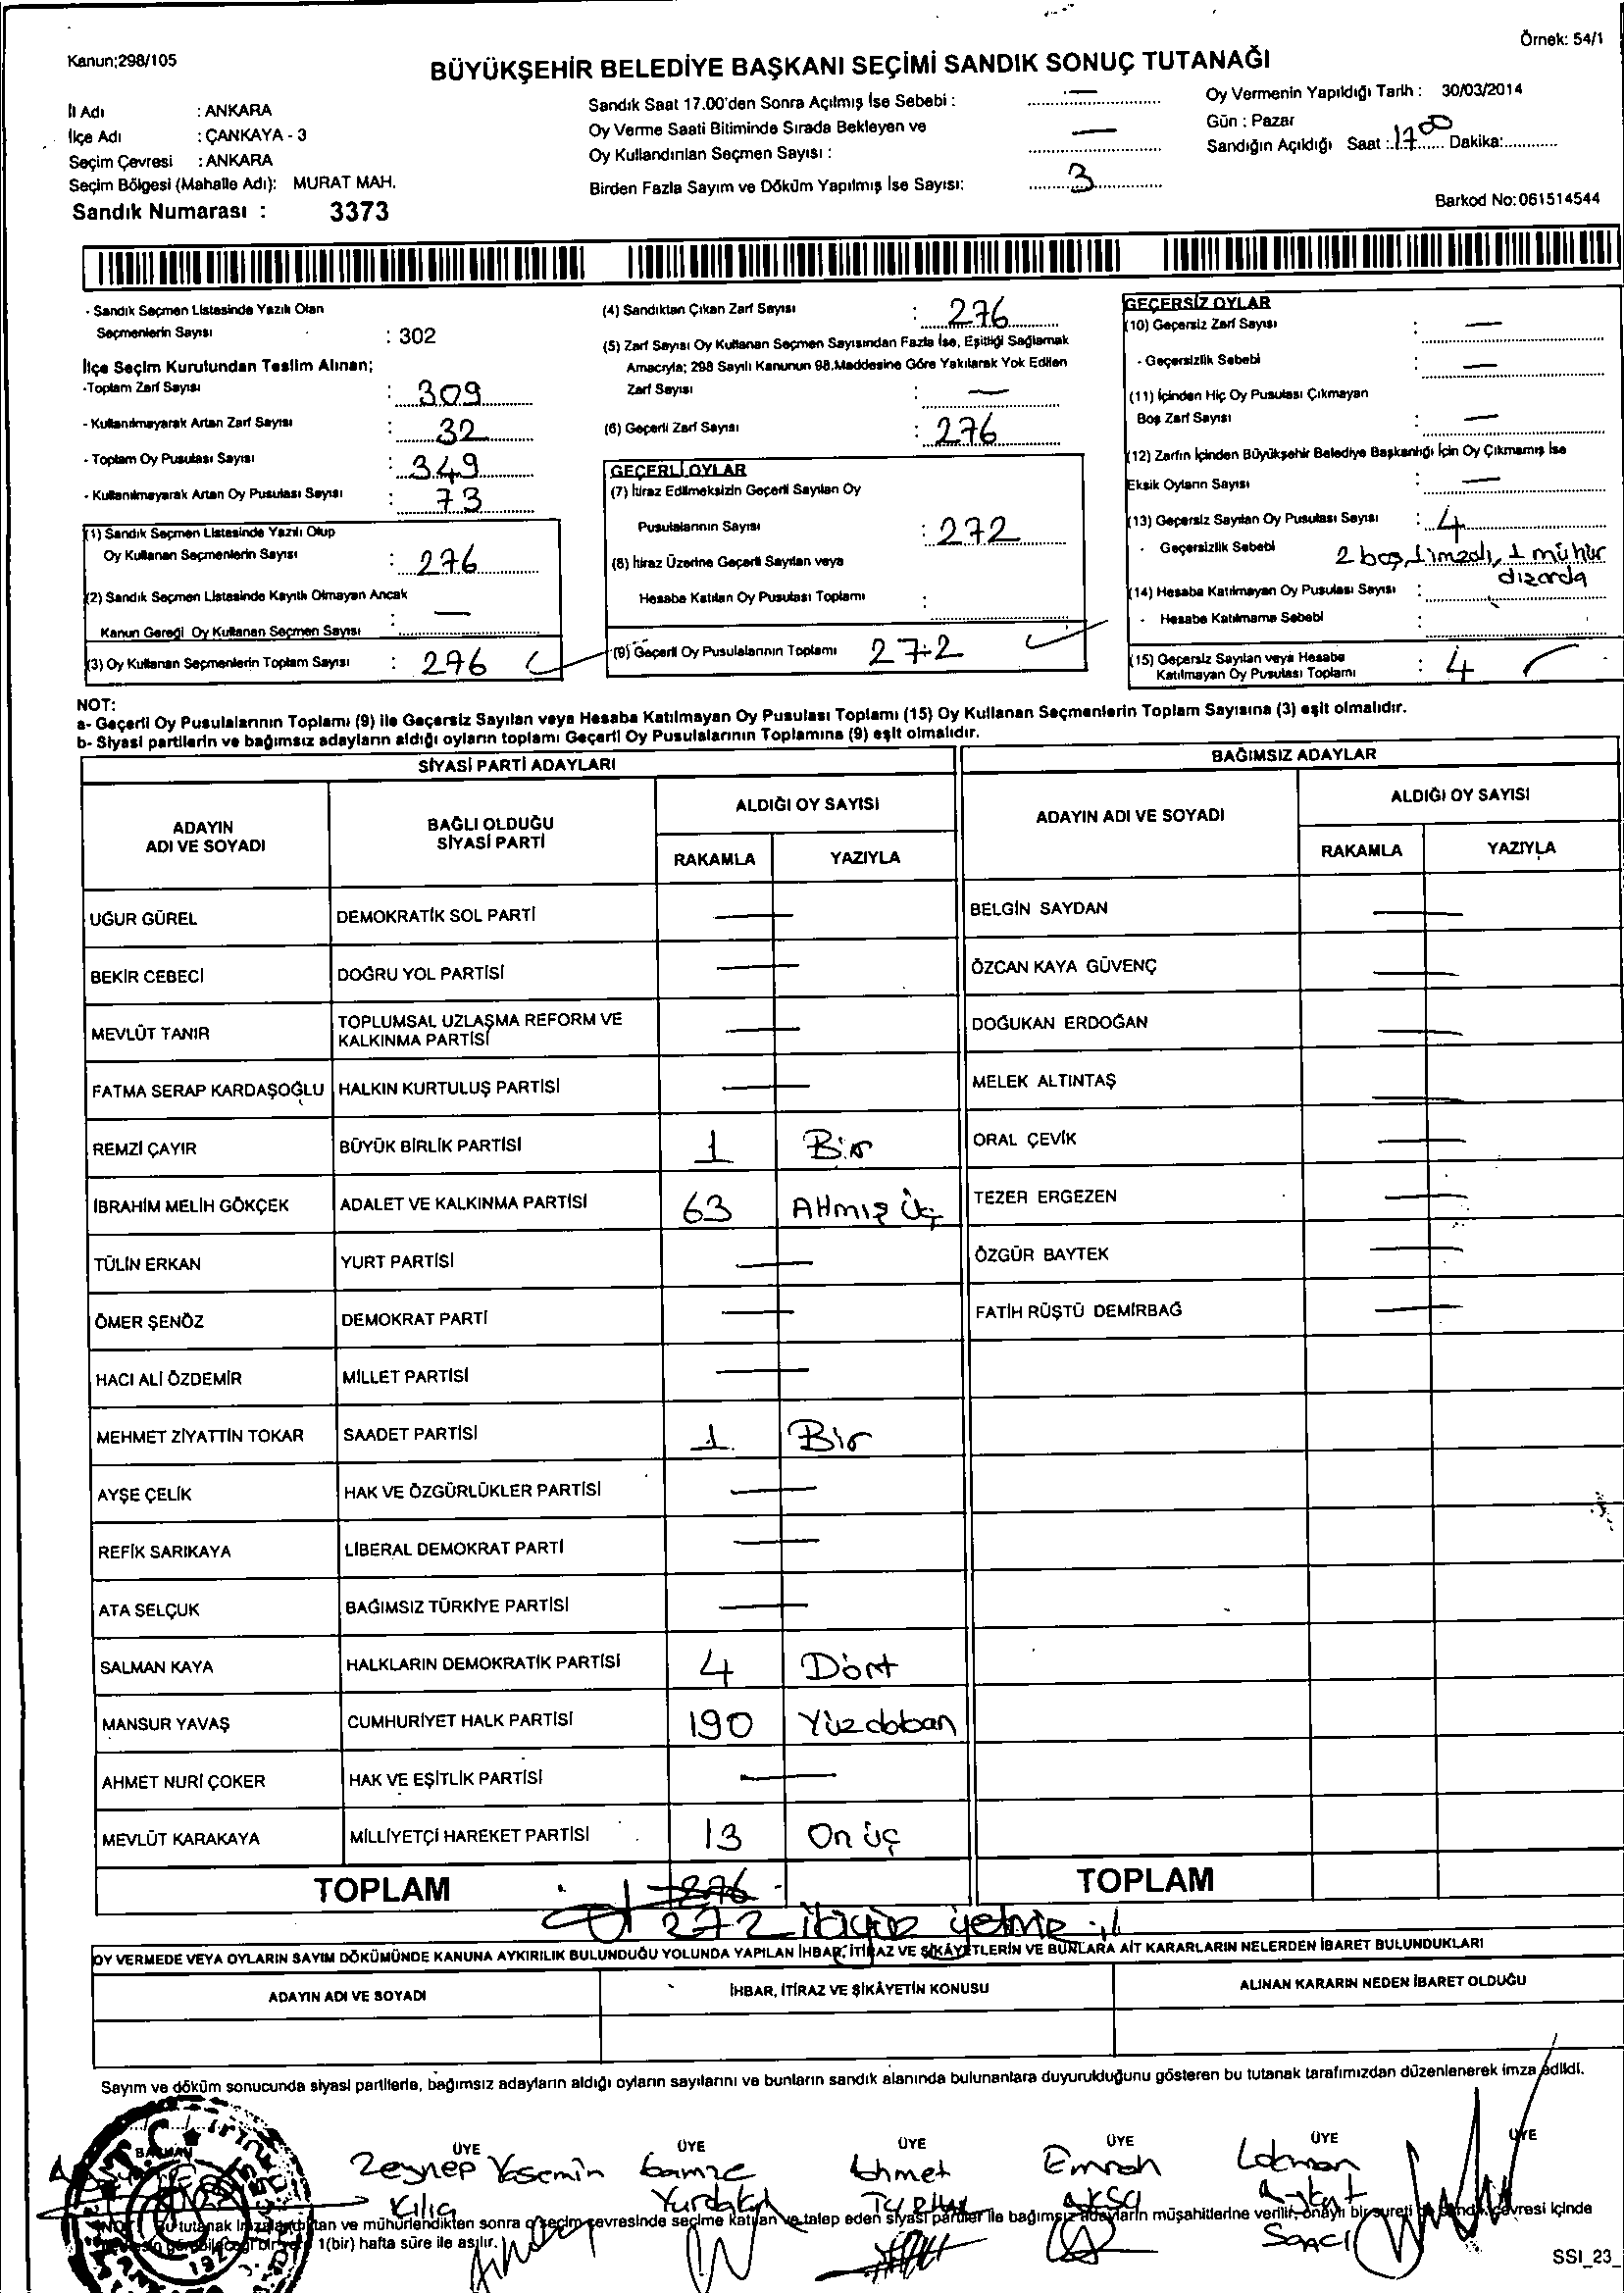 Örnek: 54/1
Kanun;298/105
BÜYÜKŞEHİR BELEDİYE BAŞKANI SEÇİMİ SANDIK SONUÇ TUTANAĞI
İl Adı : ANKARA
İlçe Adı : ÇANKAYA - 3
Seçim Çevresi : ANKARA
Seçim Bölgesi (Mahalle Adı): MURAT MAH.
Sandık Numarası : 3373
Sandık Saat 17.00'den Sonra Açılmış İse Sebebi : —
Oy Verme Saati Bitiminde Sırada Bekleyen ve
Oy Kullandırılan Seçmen Sayısı : —
Birden Fazla Sayım ve Döküm Yapılmış İse Sayısı: 3
Oy Vermenin Yapıldığı Tarih : 30/03/2014
Gün : Pazar
Sandığın Açıldığı Saat : 17 00 Dakika:
Barkod No:061514544
- Sandık Seçmen Listesinde Yazılı Olan
Seçmenlerin Sayısı : 302
İlçe Seçim Kurulundan Teslim Alınan;
-Toplam Zarf Sayısı : 309
- Kullanılmayarak Artan Zarf Sayısı : 32
- Toplam Oy Pusulası Sayısı : 349
- Kullanılmayarak Artan Oy Pusulası Sayısı : 73
(1) Sandık Seçmen Listesinde Yazılı Olup
Oy Kullanan Seçmenlerin Sayısı : 276
(2) Sandık Seçmen Listesinde Kayıtlı Olmayan Ancak
Kanun Gereği Oy Kullanan Seçmen Sayısı : —
(3) Oy Kullanan Seçmenlerin Toplam Sayısı : 276
(4) Sandıktan Çıkan Zarf Sayısı : 276
(5) Zarf Sayısı Oy Kullanan Seçmen Sayısından Fazla İse, Eşitliği Sağlamak
Amacıyla; 298 Sayılı Kanunun 98.Maddesine Göre Yakılarak Yok Edilen
Zarf Sayısı : —
(6) Geçerli Zarf Sayısı : 276
GEÇERLİ OYLAR
(7) İtiraz Edilmeksizin Geçerli Sayılan Oy
Pusulalarının Sayısı : 272
(8) İtiraz Üzerine Geçerli Sayılan veya
Hesaba Katılan Oy Pusulası Toplamı :
(9) Geçerli Oy Pusulalarının Toplamı 272
GEÇERSİZ OYLAR
(10) Geçersiz Zarf Sayısı : —
- Geçersizlik Sebebi : —
(11) İçinden Hiç Oy Pusulası Çıkmayan
Boş Zarf Sayısı : —
(12) Zarfın İçinden Büyükşehir Belediye Başkanlığı İçin Oy Çıkmamış İse
Eksik Oyların Sayısı : —
(13) Geçersiz Sayılan Oy Pusulası Sayısı : 4
- Geçersizlik Sebebi 2 boş, 1 imzalı, 1 mühür
dızarda
(14) Hesaba Katılmayan Oy Pusulası Sayısı :
- Hesaba Katılmama Sebebi :
(15) Geçersiz Sayılan veya Hesaba
Katılmayan Oy Pusulası Toplamı : 4
NOT:
a- Geçerli Oy Pusulalarının Toplamı (9) ile Geçersiz Sayılan veya Hesaba Katılmayan Oy Pusulası Toplamı (15) Oy Kullanan Seçmenlerin Toplam Sayısına (3) eşit olmalıdır.
b- Siyasi partilerin ve bağımsız adayların aldığı oyların toplamı Geçerli Oy Pusulalarının Toplamına (9) eşit olmalıdır.
SİYASİ PARTİ ADAYLARI
ADAYIN ADI VE SOYADI
BAĞLI OLDUĞU SİYASİ PARTİ
ALDIĞI OY SAYISI
RAKAMLA YAZIYLA
UĞUR GÜREL DEMOKRATİK SOL PARTİ —
BEKİR CEBECİ DOĞRU YOL PARTİSİ —
MEVLÜT TANIR TOPLUMSAL UZLAŞMA REFORM VE KALKINMA PARTİSİ —
FATMA SERAP KARDAŞOĞLU HALKIN KURTULUŞ PARTİSİ —
REMZİ ÇAYIR BÜYÜK BİRLİK PARTİSİ 1 Bir
İBRAHİM MELİH GÖKÇEK ADALET VE KALKINMA PARTİSİ 63 Atmış Üç
TÜLİN ERKAN YURT PARTİSİ —
ÖMER ŞENÖZ DEMOKRAT PARTİ —
HACI ALİ ÖZDEMİR MİLLET PARTİSİ —
MEHMET ZİYATTİN TOKAR SAADET PARTİSİ 1 Bir
AYŞE ÇELİK HAK VE ÖZGÜRLÜKLER PARTİSİ —
REFİK SARIKAYA LİBERAL DEMOKRAT PARTİ —
ATA SELÇUK BAĞIMSIZ TÜRKİYE PARTİSİ —
SALMAN KAYA HALKLARIN DEMOKRATİK PARTİSİ 4 Dört
MANSUR YAVAŞ CUMHURİYET HALK PARTİSİ 190 Yüzdoban
AHMET NURİ ÇOKER HAK VE EŞİTLİK PARTİSİ —
MEVLÜT KARAKAYA MİLLİYETÇİ HAREKET PARTİSİ 13 On üç
TOPLAM 276
272
BAĞIMSIZ ADAYLAR
ADAYIN ADI VE SOYADI
ALDIĞI OY SAYISI
RAKAMLA YAZIYLA
BELGİN SAYDAN —
ÖZCAN KAYA GÜVENÇ —
DOĞUKAN ERDOĞAN —
MELEK ALTINTAŞ —
ORAL ÇEVİK —
TEZER ERGEZEN —
ÖZGÜR BAYTEK —
FATİH RÜŞTÜ DEMİRBAĞ —
TOPLAM
OY VERMEDE VEYA OYLARIN SAYIM DÖKÜMÜNDE KANUNA AYKIRILIK BULUNDUĞU YOLUNDA YAPILAN İHBAR, İTİRAZ VE ŞİKÂYETLERİN VE BUNLARA AİT KARARLARIN NELERDEN İBARET BULUNDUKLARI
ADAYIN ADI VE SOYADI
İHBAR, İTİRAZ VE ŞİKÂYETİN KONUSU
ALINAN KARARIN NEDEN İBARET OLDUĞU
Sayım ve döküm sonucunda siyasi partilerle, bağımsız adayların aldığı oyların sayılarını ve bunların sandık alanında bulunanlara duyurulduğunu gösteren bu tutanak tarafımızdan düzenlenerek imza edildi.
BAŞKAN ÜYE ÜYE ÜYE ÜYE ÜYE ÜYE
Zeynep Yasemin Kılıç
Gamze
Ahmet
Emrah
NOT: Bu tutanak imzalandıktan ve mühürlendikten sonra o seçim çevresinde seçime katılan ve talep eden siyasi partiler ile bağımsız adayların müşahitlerine verilir, onaylı bir sureti de sandık çevresi içinde
1(bir) hafta süre ile asılır.
SSI_23_